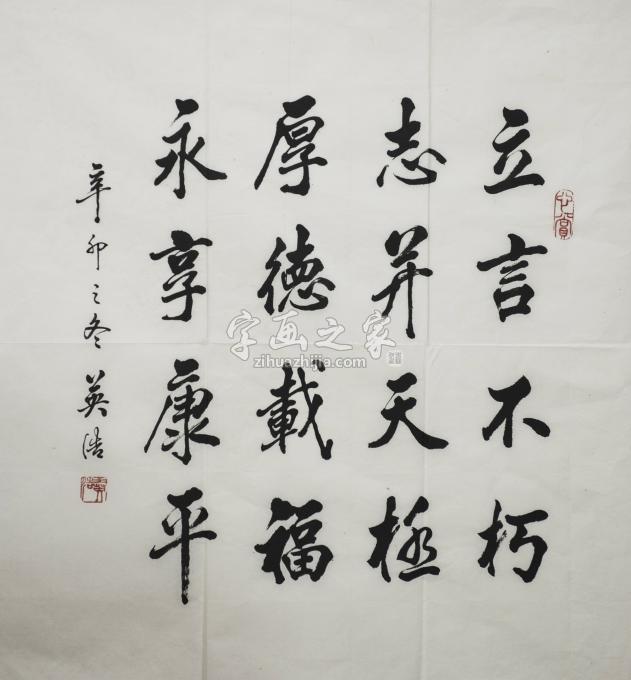 立言不朽
志并天極
厚德載福
永享康平
辛卯之冬 英浩
字画之家
zihuazhijia.com